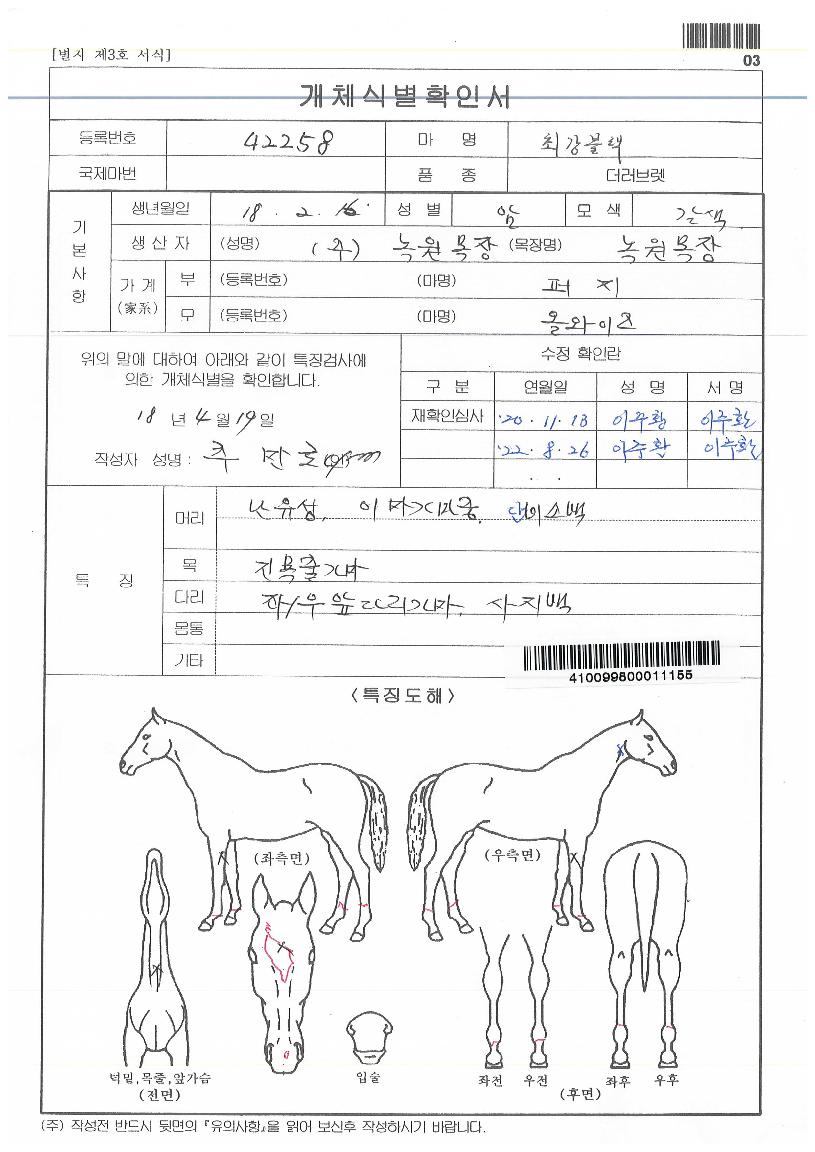 [별지 제3호 서식]
03
개체식별확인서
등록번호 42258 마 명 최강블랙
국제마번 품 종 더러브렛
기본사항
생년월일 18. 2. 16. 성 별 암 모 색 갈색
생 산 자 (성명) (주) 녹원목장 (목장명) 녹원목장
가 계 (家系) 부 (등록번호) (마명) 퍼 지
모 (등록번호) (마명) 올와이즈
위의 말에 대하여 아래와 같이 특징검사에
의한 개체식별을 확인합니다.
18 년 4 월 19 일
작성자 성명 :
수정 확인란
구 분 연월일 성 명 서 명
재확인심사 '20 . 11 . 13 이주환 이주환
'22 . 8 . 26 이주환 이주환
. .
특 징
머리 난유성,
목
다리 좌/우 앞다리가마, 사지백
몸통
기타
410099800011155
<특징도해>
(좌측면)
(우측면)
턱밑,목줄,앞가슴
(전면)
입술
좌전 우전
(후면)
좌후 우후
(주) 작성전 반드시 뒷면의 『유의사항』을 읽어 보신후 작성하시기 바랍니다.